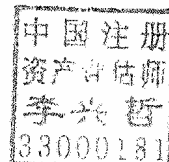 中国注册
资产评估师
李兴哲
33000181